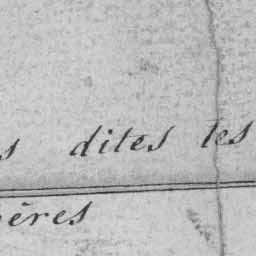 s dites les
ères